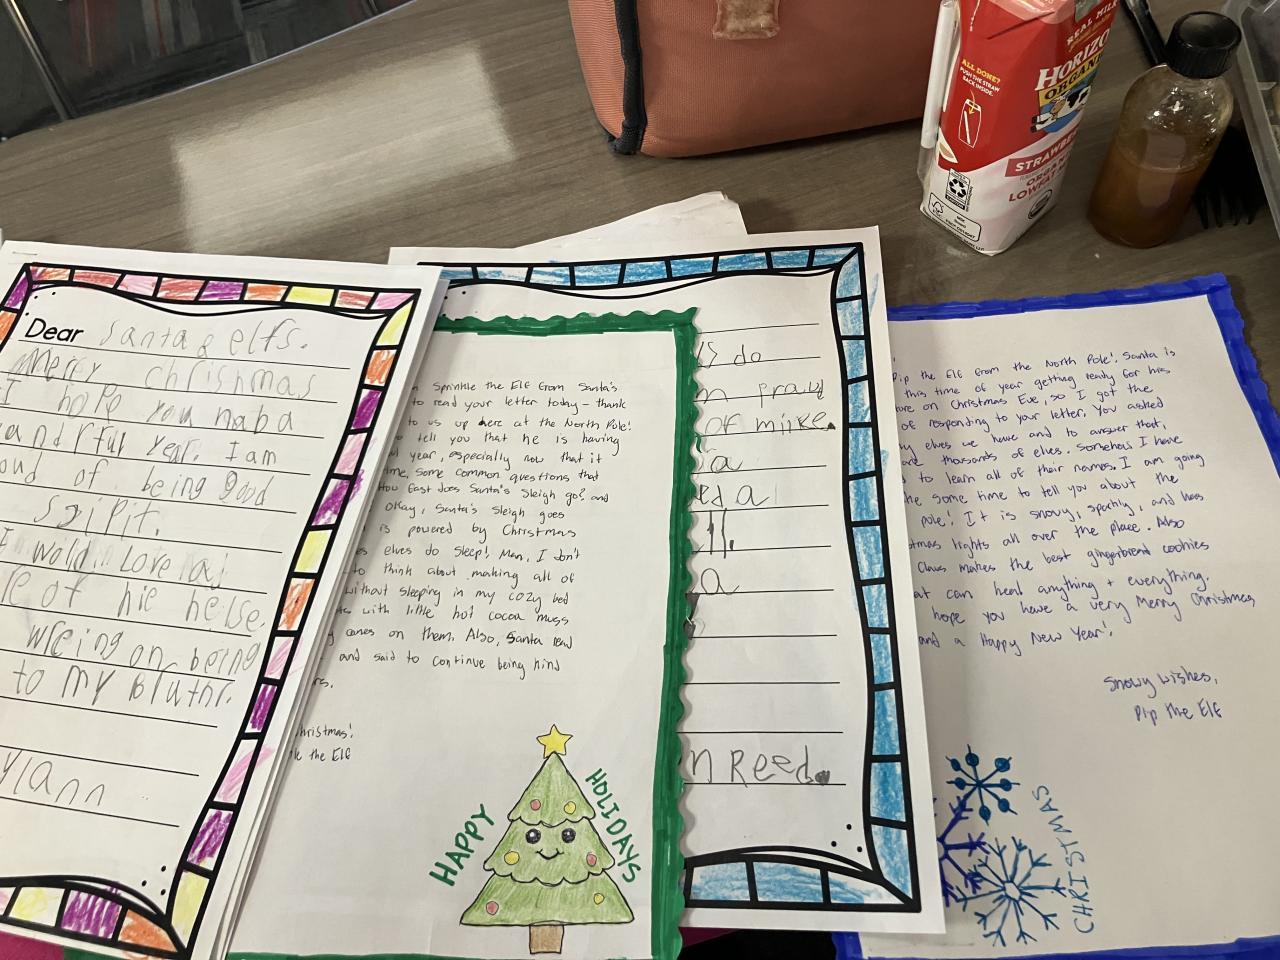 Dear Santa & elfs.
Merry chrishmas
I hope you naba
andrful year. I am
oud of being good
Spipit.
I wold Love a
le of hie helse.
wrcing on being
to my Bluthr.
ylann
n Sprinkle the Elf from Santa's
to read your letter today - thank
to us up here at the North Pole!
tell you that he is having
l year, especially now that it
ime. Some common questions that
How fast does Santa's sleigh go? and
Okay, Santa's sleigh goes
is powered by Christmas
es elves do sleep! Man, I don't
to think about making all of
without sleeping in my cozy bed
with little hot cocoa mugs
y canes on them. Also, Santa read
and said to continue being kind
rs.
Christmas!
le the Elf
HAPPY
HOLIDAYS
ls do
n proud
of miike.
a
ed a
ll.
a
n Reed.
Pip the Elf from the North Pole! Santa is
this time of year getting ready for his
ure on Christmas Eve, so I got the
of responding to your letter. You asked
ny elves we have and to answer that,
are thousands of elves. Somehow I have
to learn all of their names. I am going
he some time to tell you about the
pole! It is snowy, sparkly, and has
stmas lights all over the place. Also
Claus makes the best gingerbread cookies
at can heal anything + everything.
hope you have a very Merry Christmas
and a Happy New Year!
Snowy wishes,
Pip the Elf
CHRISTMAS
ALL DONE?
PUSH THE STRAW
BACK INSIDE.
REAL MILK
HORIZO
ORGANIC
STRAWBE
ORGANIC
LOWFAT M